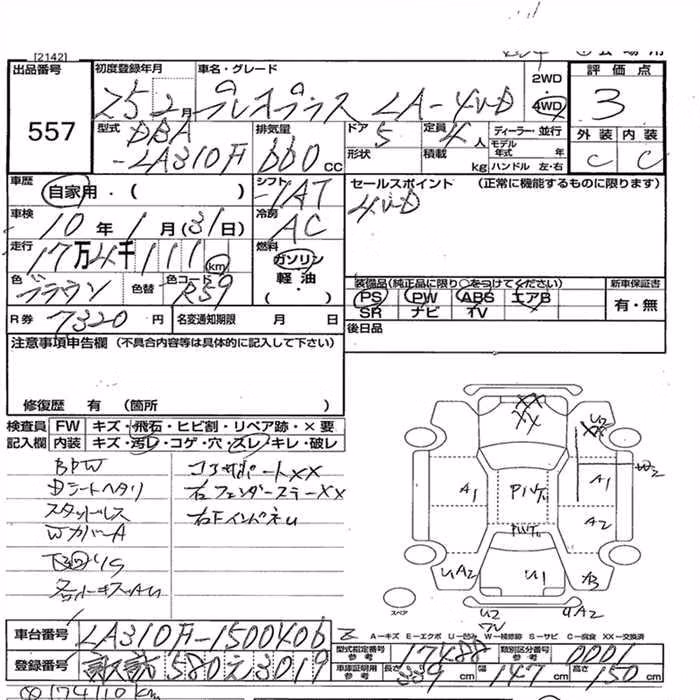 [2142]
出品番号
557
初度登録年月
25 2月
車名・グレード
プレオプラス LA-4WD
2WD
・
4WD
評価点
3
外装 内装
C C
型式
DBA
-LA310F
排気量
660 CC
ドア 5
形状
定員 4 人
積載 kg
ディーラー・並行
モデル年式 年
ハンドル 左・右
車歴 自家用・( )
シフト IAT
セールスポイント (正常に機能するものに限ります)
4WD
車検 10年 1月(31日)
冷房 AC
走行 17万4千111 km
燃料
ガソリン
軽油
(・)
色 ブラウン
色替
色コード R59
装備品(純正品に限り○をつけてください)
PS PW ABS エアB
SR ナビ TV
新車保証書
有・無
R券 7320 円
名変通知期限 月 日
後日品
注意事項申告欄 (不具合内容等は具体的に記入して下さい)
修復歴 有 (箇所 )
検査員
記入欄
FW キズ・飛石・ヒビ割・リペア跡・×要
内装 キズ・汚レ・コゲ・穴・スレ・キレ・破レ
BPW
Dシートヘタリ
スタッドレス
WカバーA
コアサポートXX
右フェンダーステーXX
右Fインパネu
A1
A1
A2
A3
UA2
U1
U2
UA2
スペア
A-キズ E-エクボ U-凹み W-補修跡 S-サビ C-腐食 XX-交換済
車台番号 LA310F-1500406
型式指定番号 17488
類別区分番号 0001
登録番号 580 3019
車庫証明用参考 長さ 339 cm 幅 147 cm 高さ 150 cm
174110km